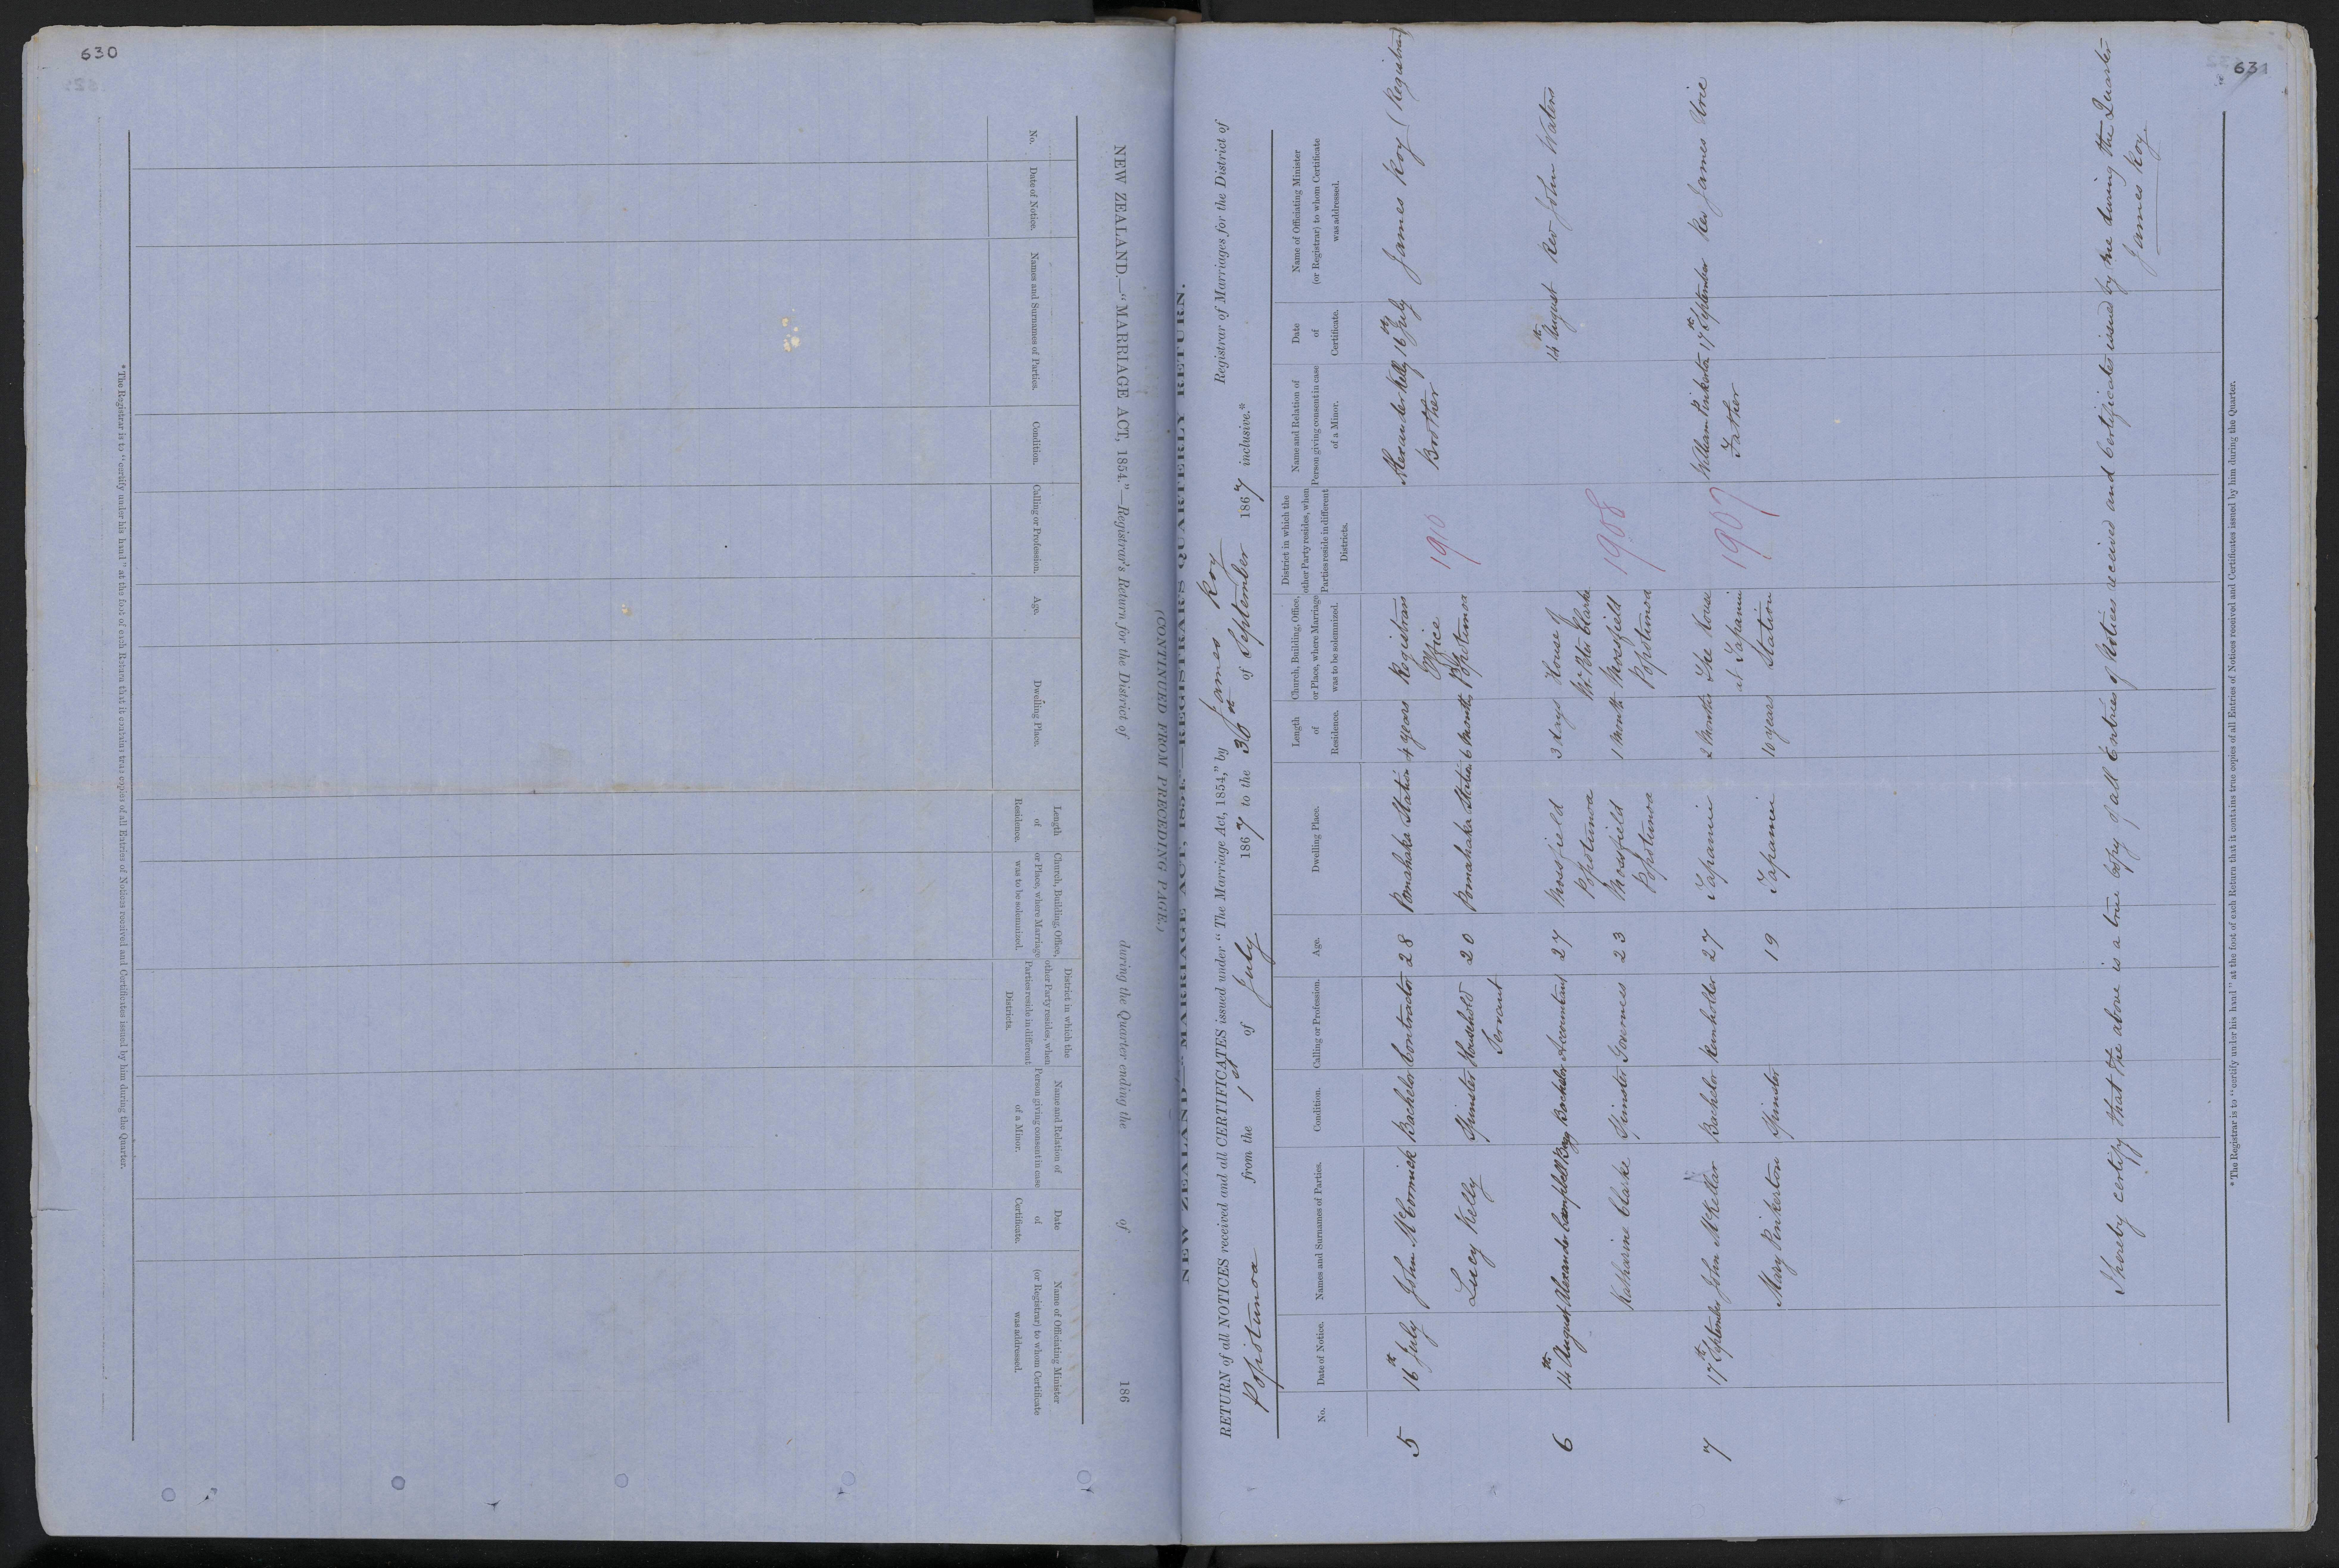 630
NEW ZEALAND.—"MARRIAGE ACT, 1854."—Registrar's Return for the District of during the Quarter ending the of 186
(CONTINUED FROM PRECEDING PAGE.)
No.
Date of Notice.
Names and Surnames of Parties.
Condition.
Calling or Profession.
Age.
Dwelling Place.
Length
of
Residence.
Church, Building, Office,
or Place, where Marriage
was to be solemnized.
District in which the
other Party resides, when
Parties reside in different
Districts.
Name and Relation of
Person giving consent in case
of a Minor.
Date
of
Certificate.
Name of Officiating Minister
(or Registrar) to whom Certificate
was addressed.
* The Registrar is to "certify under his hand" at the foot of each Return that it contains true copies of all Entries of Notices received and Certificates issued by him during the Quarter.
631
NEW ZEALAND—"MARRIAGE ACT, 1854."—REGISTRAR'S QUARTERLY RETURN.
RETURN of all NOTICES received and all CERTIFICATES issued under "The Marriage Act, 1854," by James Roy Registrar of Marriages for the District of
Popotunoa from the 1st of July 1867 to the 30th of September 1867 inclusive.*
No.
Date of Notice.
Names and Surnames of Parties.
Condition.
Calling or Profession.
Age.
Dwelling Place.
Length
of
Residence.
Church, Building, Office,
or Place, where Marriage
was to be solemnized.
District in which the
other Party resides, when
Parties reside in different
Districts.
Name and Relation of
Person giving consent in case
of a Minor.
Date
of
Certificate.
Name of Officiating Minister
(or Registrar) to whom Certificate
was addressed.
5 16th July John McCormick Bachelor Contractor 28 Pomahaka Station 4 years Registrars Alexander Kelly 16th July James Roy (Registrar)
Office Brother
Lucy Kelly Spinster Household 20 Pomahaka Station 6 months Popotunoa 1910
Servant
6 14th August Alexander Campbell Begg Bachelor Accountant 27 Moesfield 3 days House of 14th August Rev John Waters
Popotunoa Mr Clarke
Katharine Clarke Spinster Governess 23 Moesfield 1 Month Moesfield 1908
Popotunoa Popotunoa
7 17th September John McKellar Bachelor Runholder 27 Tapanui 2 Months The house 1909 William Pinkerton 17th September Rev James Urie
at Tapanui Father
Mary Pinkerton Spinster 19 Tapanui 10 years Station
I hereby certify that the above is a true copy of all Entries of Notices received and Certificates issued by me during the Quarter
James Roy
* The Registrar is to "certify under his hand" at the foot of each Return that it contains true copies of all Entries of Notices received and Certificates issued by him during the Quarter.